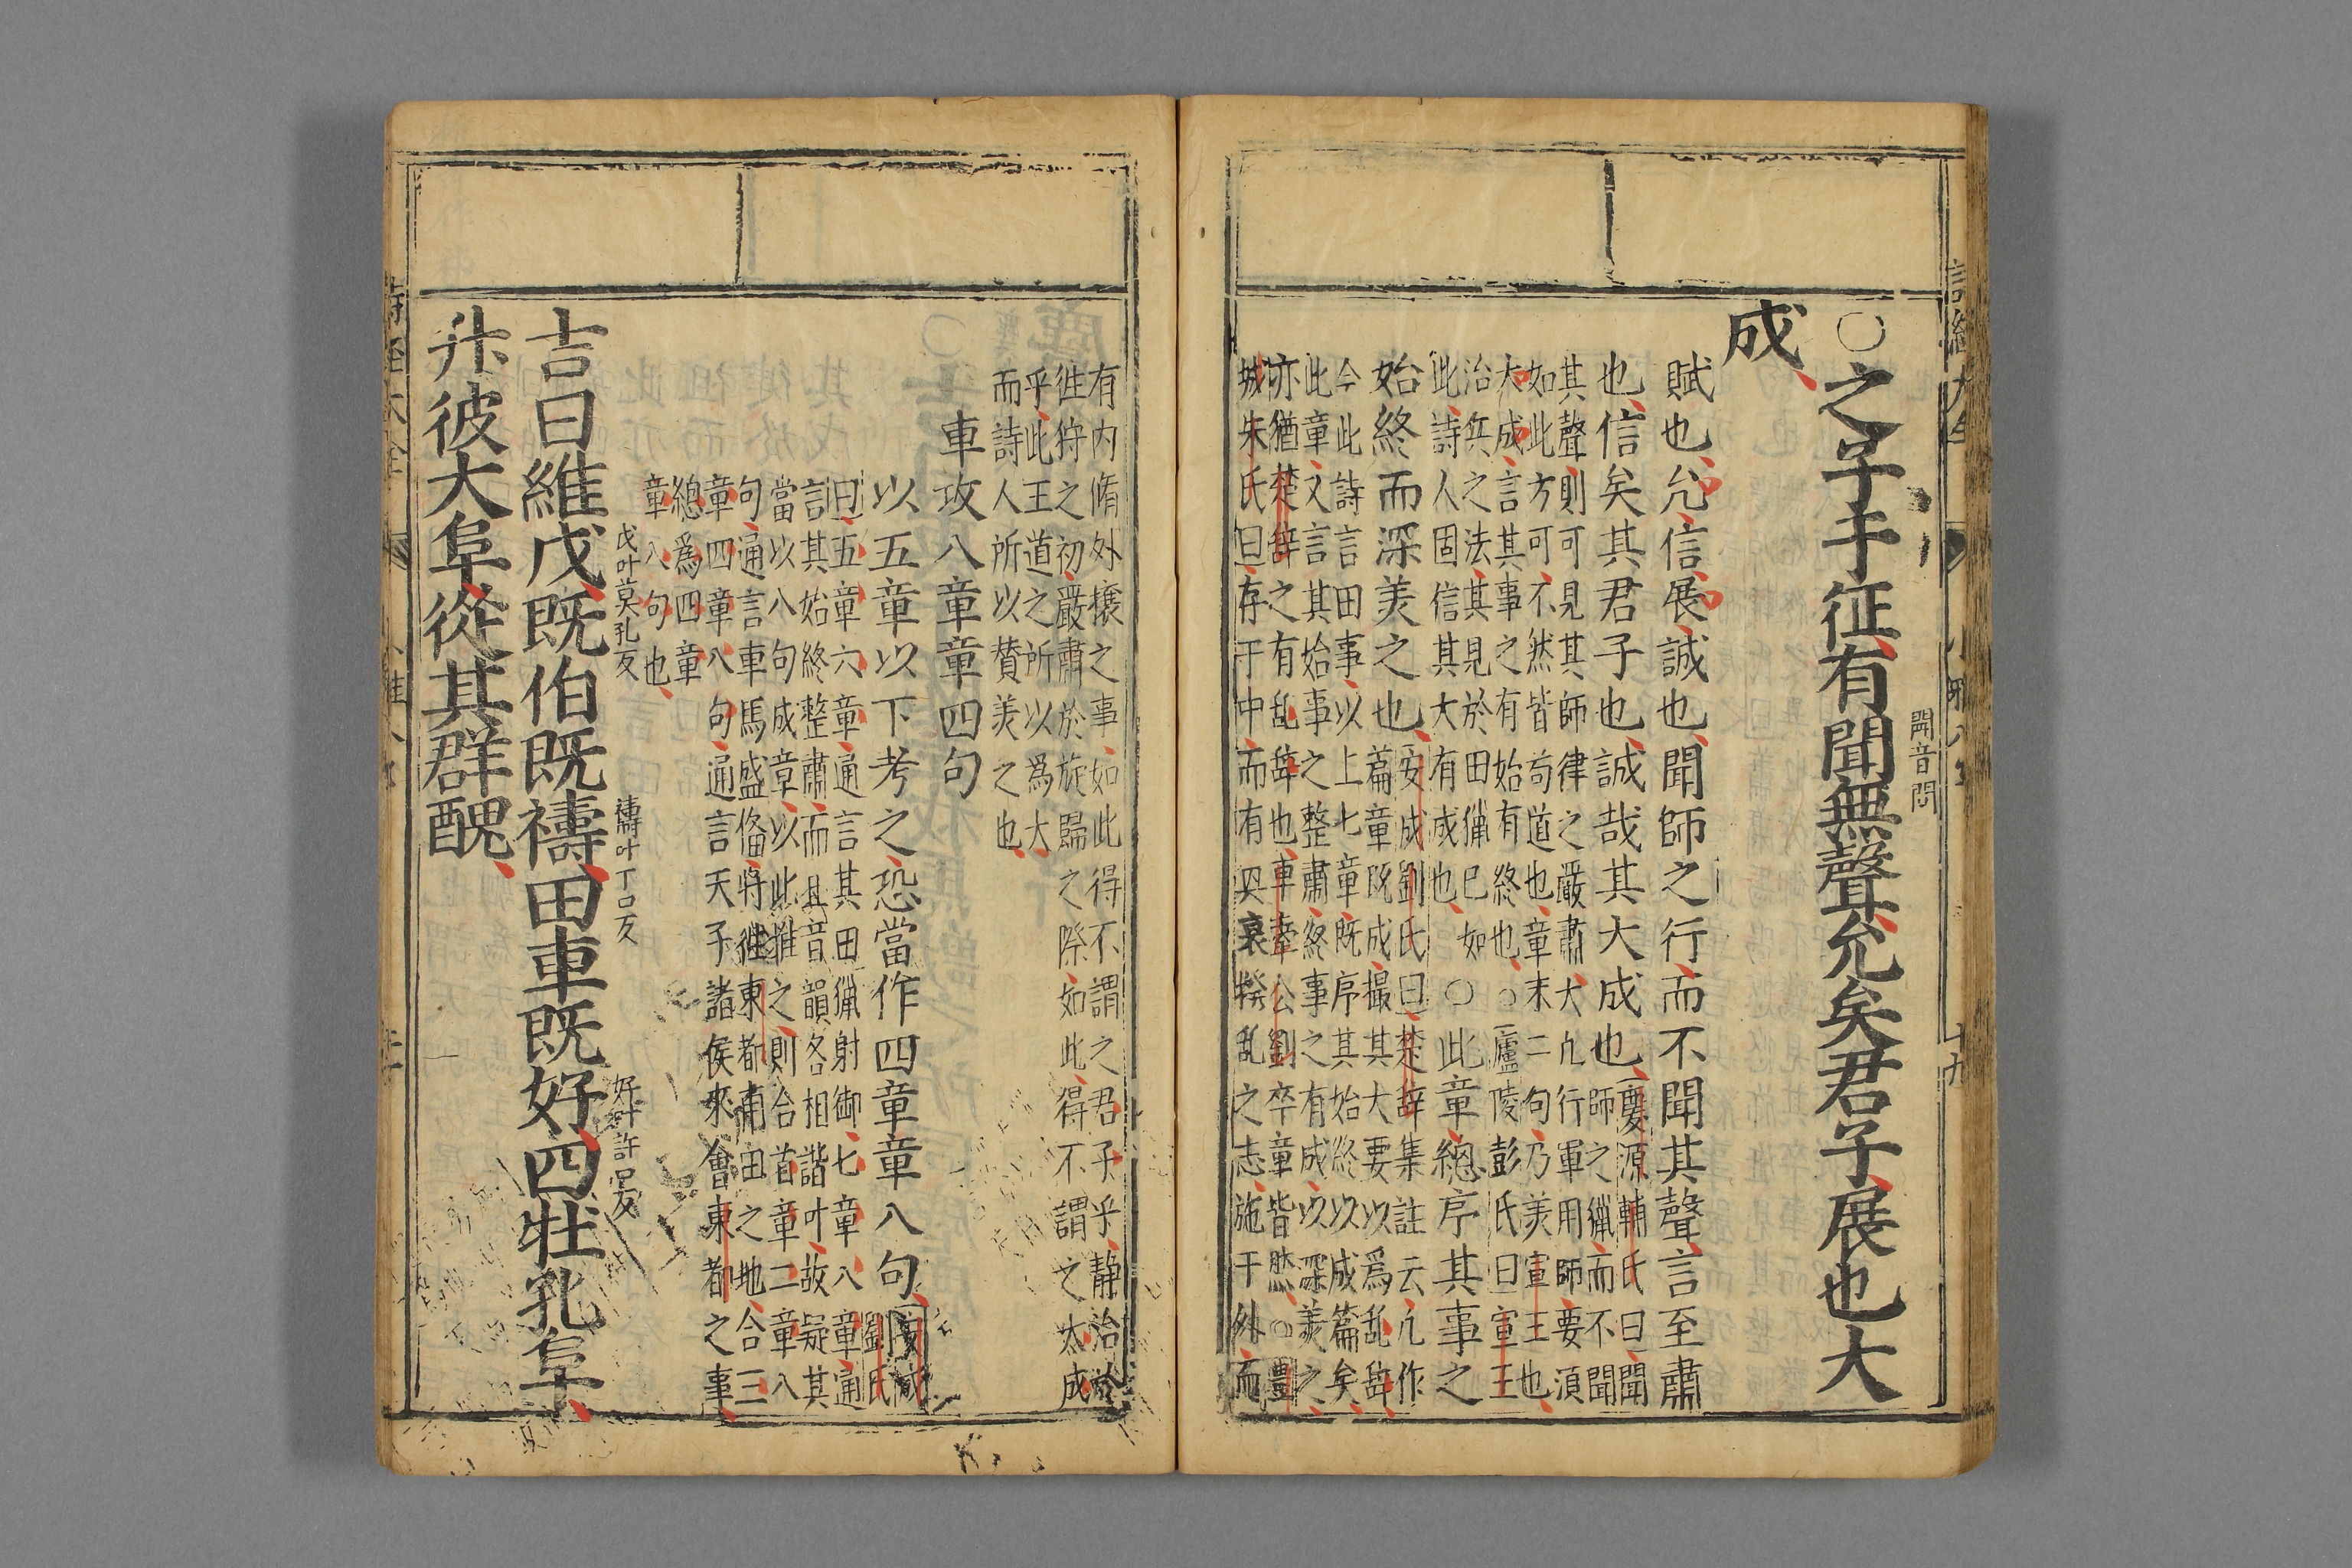 ○之子于征有聞無聲允矣君子展也大
聞音問
成
賦也允信展誠也聞師之行而不聞其聲言至肅
也信矣其君子也誠哉其大成也
慶源輔氏曰聞
師之獵而不聞
其聲則可見其師律之嚴肅大凡行軍用師要須
如此方可不然皆苟道也章末二句乃美宣王也
大成言其事之有始有終也○廬陵彭氏曰宣王
治兵之法其見於田獵已如
此詩人固信其大有成也
○此章總序其事之
始終而深美之也
安成劉氏曰楚辞集註云凡作
篇章既成撮其大要以爲乱辞
今此詩言田事以上七章既序其始終以成篇矣
此章又言其始事之整肅終事之有成以深美之
亦猶楚辞之有乱辞也車舝公劉卒章皆然○豐
城朱氏曰存于中而有
哀
乱之志施于外而
有内脩外攘之事如此得不謂之君子乎静治於
徃狩之初嚴肅於旋歸之際如此得不謂之太成
乎此王道之所以爲大
而詩人所以賛美之也
車攻八章章四句
以五章以下考之恐當作四章章八句
安成
劉氏
曰五章六章通言其田獵射御七章八章通
言其始終整肅而且音韻各相諧叶故疑其
當以八句成章以此推之則合首章二章八
句通言車馬盛俻將徃東都甫田之地合三
章四章八句通言天子諸侯來會東都之事
總爲四章
章八句也
吉日維戊既伯既禱田車既好四牡孔阜
戊叶莫孔反
禱叶丁口反
好叶許口反
升彼大阜從其群醜